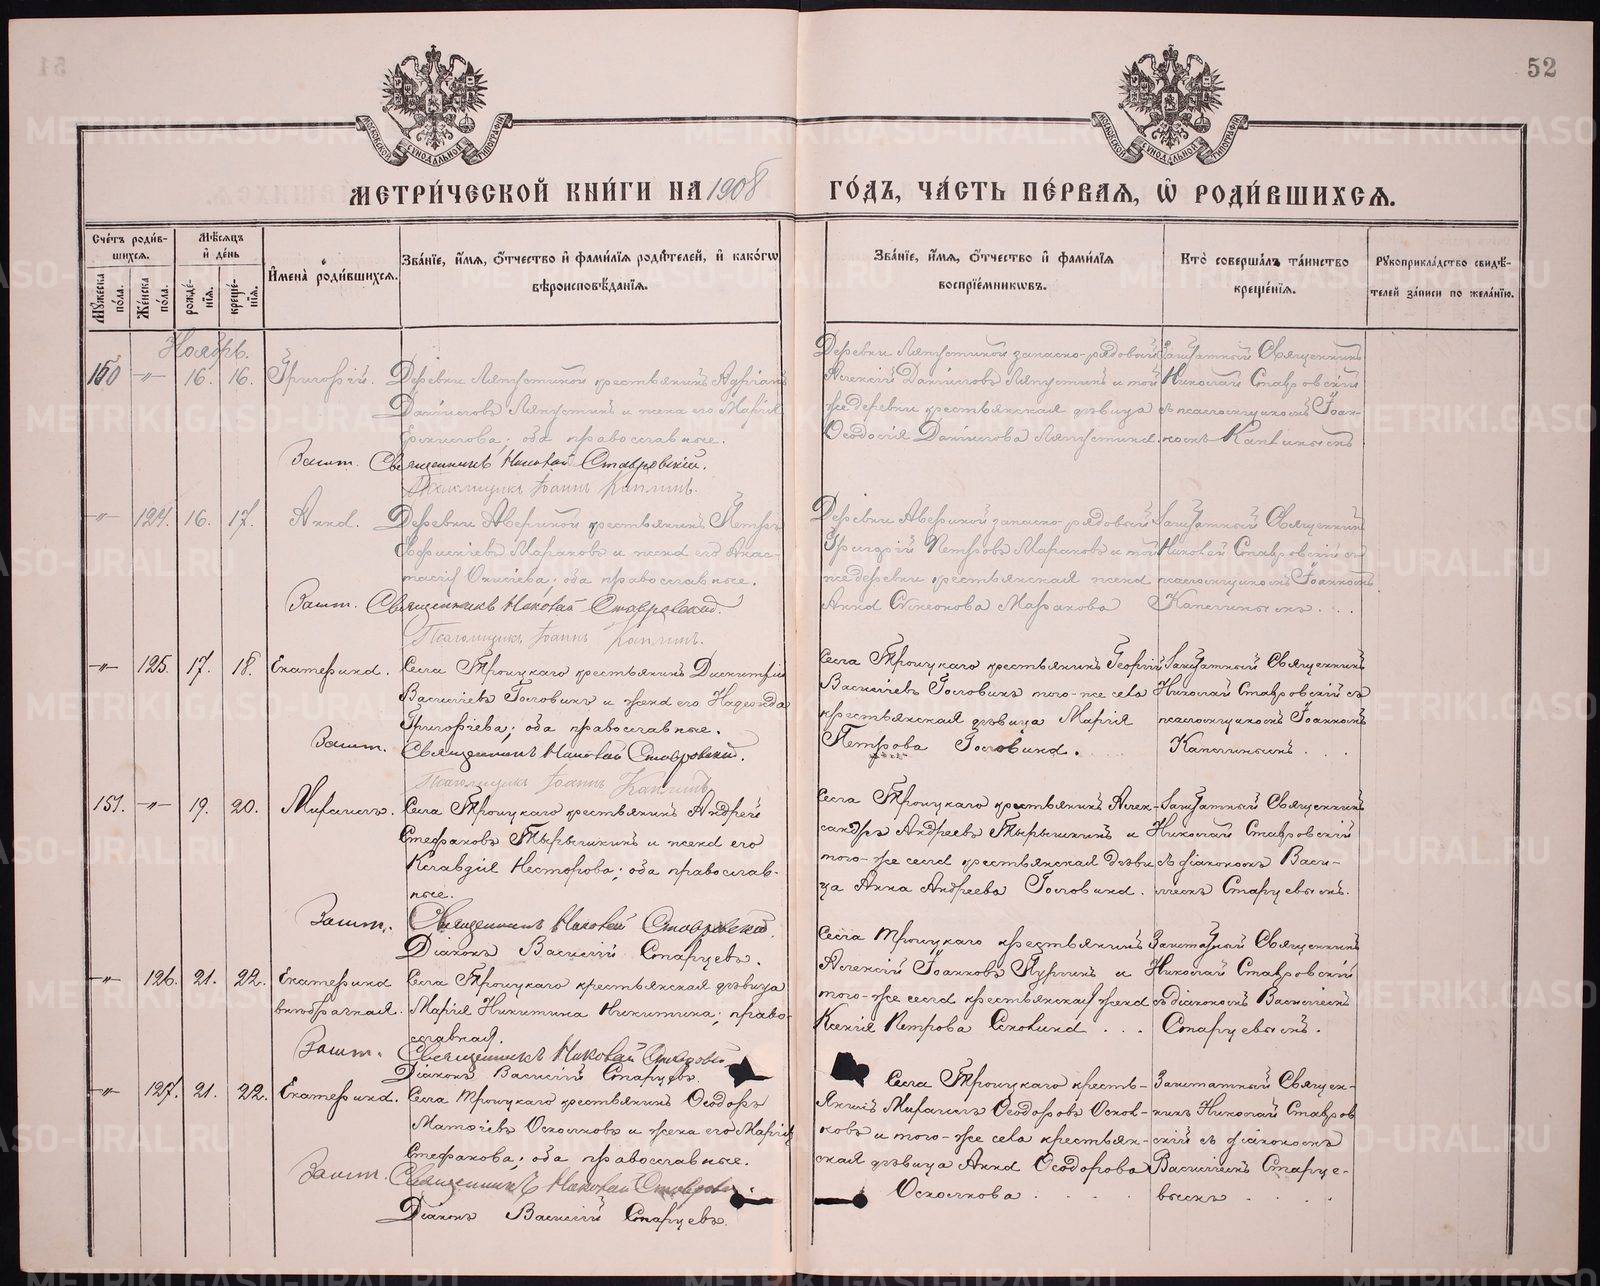 52
МОСКОВСКОЙ СѴНОДАЛЬНОЙ ТИПОГРАФІИ
МОСКОВСКОЙ СѴНОДАЛЬНОЙ ТИПОГРАФІИ
МЕТРИ́ЧЕСКОЙ КНИ́ГИ НА 1908 ГО́ДЪ, ЧА́СТЬ ПЕ́РВАЯ, Ѡ РОДИ́ВШИХСЯ.
Сче́тъ роди́в-
шихся.
Мꙋ́жеска по́ла.
Же́нска по́ла.
Мѣ́сяцъ
и҆ де́нь
рожде́-
нїя.
креще́-
нїя.
И҆мена̀ роди́вшихся.
Зва́нїе, и҆́мя, ѻ҆́тчество и҆ фами́лїя роди́телей, и҆ како́гѡ
вѣроисповѣ́данїя.
Зва́нїе, и҆́мя, ѻ҆́тчество и҆ фами́лїя
воспрїе́мникѡвъ.
Кто̀ соверша́лъ та́инство
креще́нїя.
Рꙋкоприкла́дство свидѣ́-
телей за́писи по жела́нїю.
Ноябрь.
150 -"- 16. 16. Григорій.
Деревни Ляпустиной крестьянинъ Адріанъ
Даніиловъ Ляпустинъ и жена его Марія
Ермилова; оба православные.
Зашт. Священникъ Николай Ставровскій.
Псаломщикъ Іоаннъ Каплинъ.
Деревни Ляпустиной запасно-рядовый
Алексій Даніиловъ Ляпустинъ и той
же деревни крестьянская дѣвица
Ѳеодосія Даніилова Ляпустина.
Заштатный Священникъ
Николай Ставровскій
съ псаломщикомъ Іоан-
номъ Каплинымъ
-"- 124. 16. 17. Анна.
Деревни Авериной крестьянинъ Петръ
Марановъ и жена его Анас-
тасія; оба православные.
Зашт. Священникъ Николай Ставровскій.
Псаломщикъ Іоаннъ Каплинъ.
Деревни Авериной запасно рядовый
Григорій Петровъ Марановъ и той
же деревни крестьянская жена
Анна Симеонова Маранова
Заштатный Священникъ
Николай Ставровскій съ
псаломщикомъ Іоанномъ
Каплинымъ.
-"- 125. 17. 18. Екатерина.
Села Троицкаго крестьянинъ Димитрій
Василіевъ Головинъ и жена его Надежда
Григоріева; оба православные.
Зашт. Священникъ Николай Ставровскій.
Псаломщикъ Іоаннъ Каплинъ
Села Троицкаго крестьянинъ Георгій
Василіевъ Головинъ того-же села
крестьянская дѣвица Марія
Петрова Головина.
Заштатный Священникъ
Николай Ставровскій съ
псаломщикомъ Іоанномъ
Каплинымъ.
151. -"- 19. 20. Михаилъ.
Села Троицкаго крестьянинъ Андрей
Стефановъ Тырышкинъ и жена его
Клавдія Несторова; оба православ-
ные.
Зашт. Священникъ Николай Ставровскій.
Діаконъ Василій Старцевъ.
Села Троицкаго крестьянинъ Алек-
сандръ Андреевъ Тырышкинъ и
того-же села крестьянская дѣви-
ца Анна Андреева Головина.
Заштатный Священникъ
Николай Ставровскій
съ діакономъ Васи-
ліемъ Старцевымъ.
-"- 126. 21. 22. Екатерина
внѣбрачная.
Села Троицкаго крестьянская дѣвица
Марія Никитина Никитина; право-
славная.
Зашт. Священникъ Николай Ставровскій
Діаконъ Василій Старцевъ.
Села Троицкаго крестьянинъ
Алексій Іоанновъ Пургинъ и
того-же села крестьянская жена
Ксенія Петрова
Заштатный Священникъ
Николай Ставровскій
съ діакономъ Василіемъ
Старцевымъ.
-"- 127. 21. 22. Екатерина.
Села Троицкаго крестьянинъ Ѳеодоръ
Матѳіевъ Осколковъ и жена его Марія
Стефанова; оба православные.
Зашт. Священникъ Николай Ставровскій
Діаконъ Василій Старцевъ.
Села Троицкаго кресть-
янинъ Михаилъ Ѳеодоровъ Оскол-
ковъ и того-же села крестьян-
ская дѣвица Анна Ѳеодорова
Осколкова
Заштатный Священ-
никъ Николай Ставров-
скій съ діакономъ
Василіемъ Старце-
вымъ
METRIKI.GASO-URAL.RU